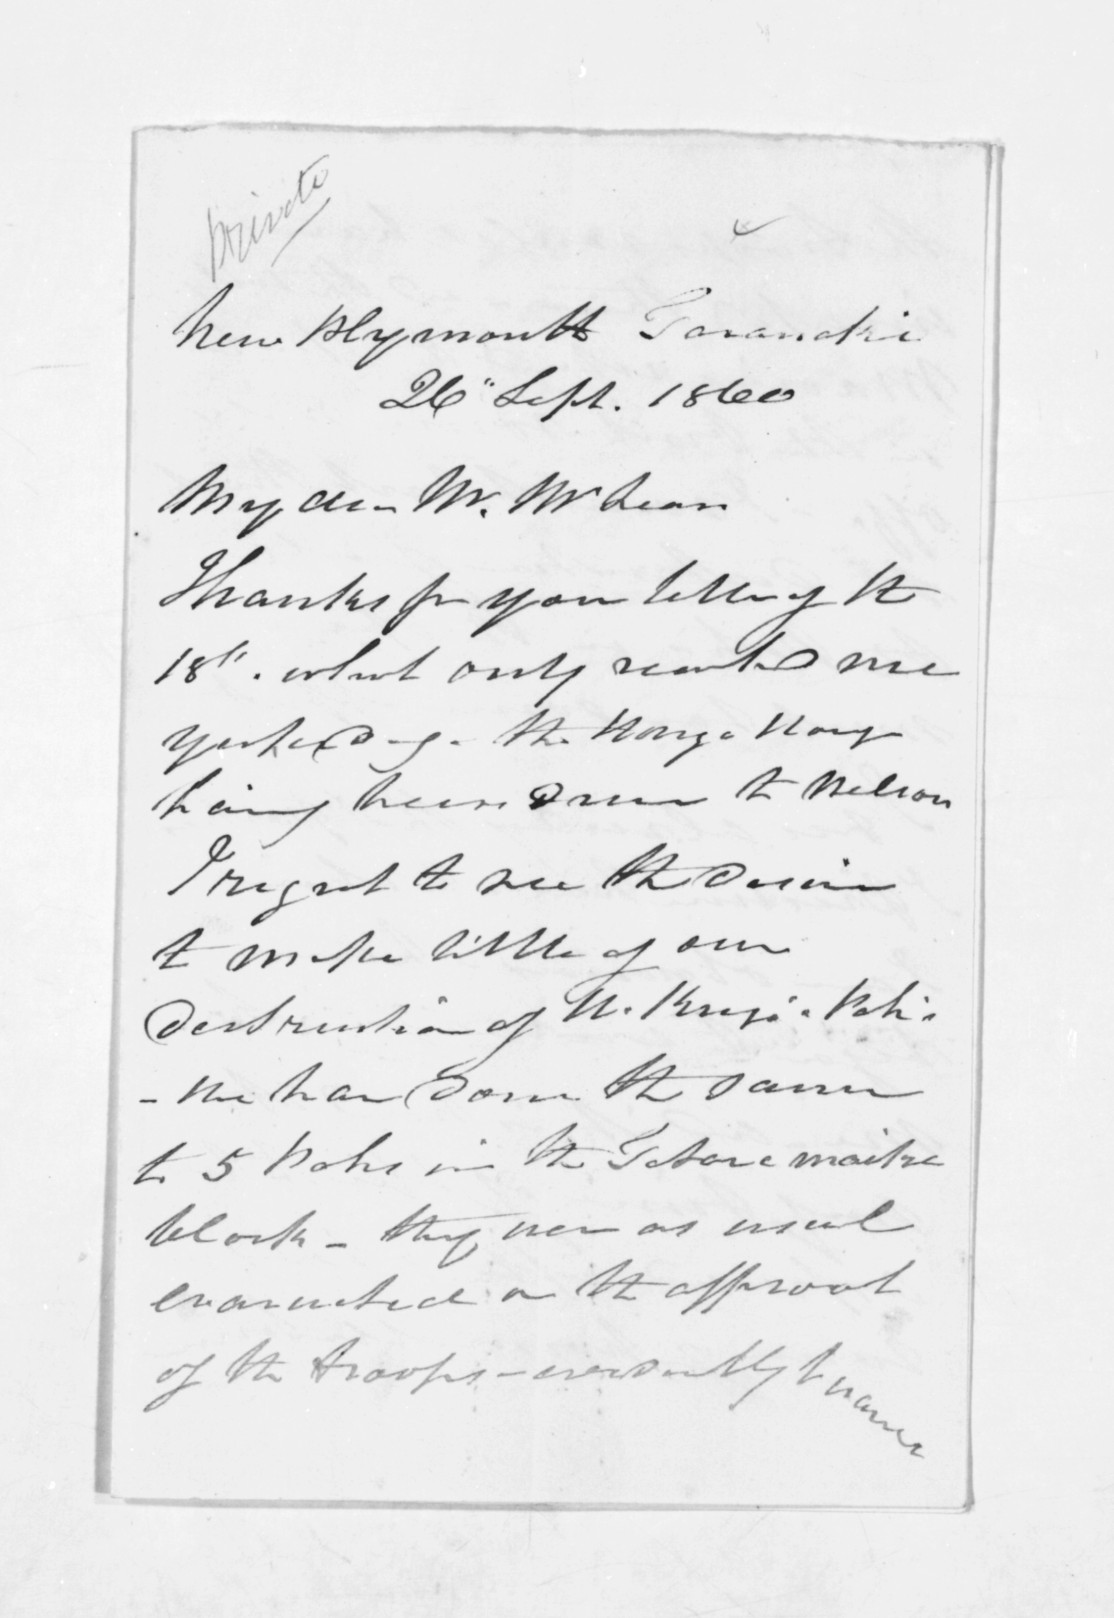 Private
New Plymouth Taranaki
26" Sept. 1860
My dear Mr. McLean
Thanks for your letter of the
18". which only reached me
yesterday. the Wonga Wonga
having been down to Nelson
I regret to see the desire
to make little of our
destruction of W. Kingi's Pahs.
- We have done the same
to 5 Pahs in the Tataraimaka
block - they were as usual
evacuated on the approach
of the troops - evidently